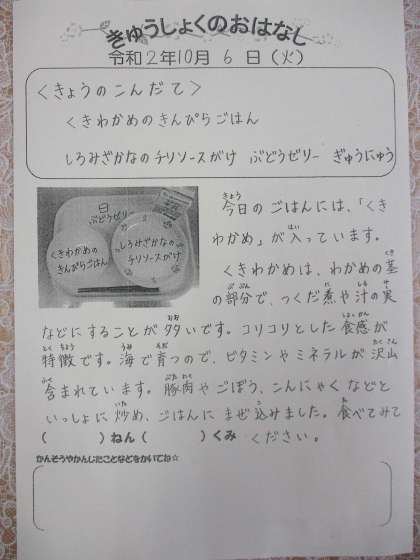 きゅうしょくのおはなし
令和2年10月 6 日 (火)
<きょうのこんだて>
くきわかめのきんぴらごはん
しろみざかなのチリソースがけ ぶどうゼリー ぎゅうにゅう
ぶどうゼリー
くきわかめの
きんぴらごはん
しろみざかなの
チリソースがけ
今日のごはんには、「くき
わかめ」が入っています。
くきわかめは、わかめの茎
の部分で、つくだ煮や汁の実
などにすることが多いです。コリコリとした食感が
特徴です。海で育つので、ビタミンやミネラルが沢山
含まれています。豚肉やごぼう、こんにゃくなどと
いっしょに炒め、ごはんにまぜ込みました。食べてみて
ください。
( )ねん( )くみ
かんそうやかんじたことなどをかいてね☆